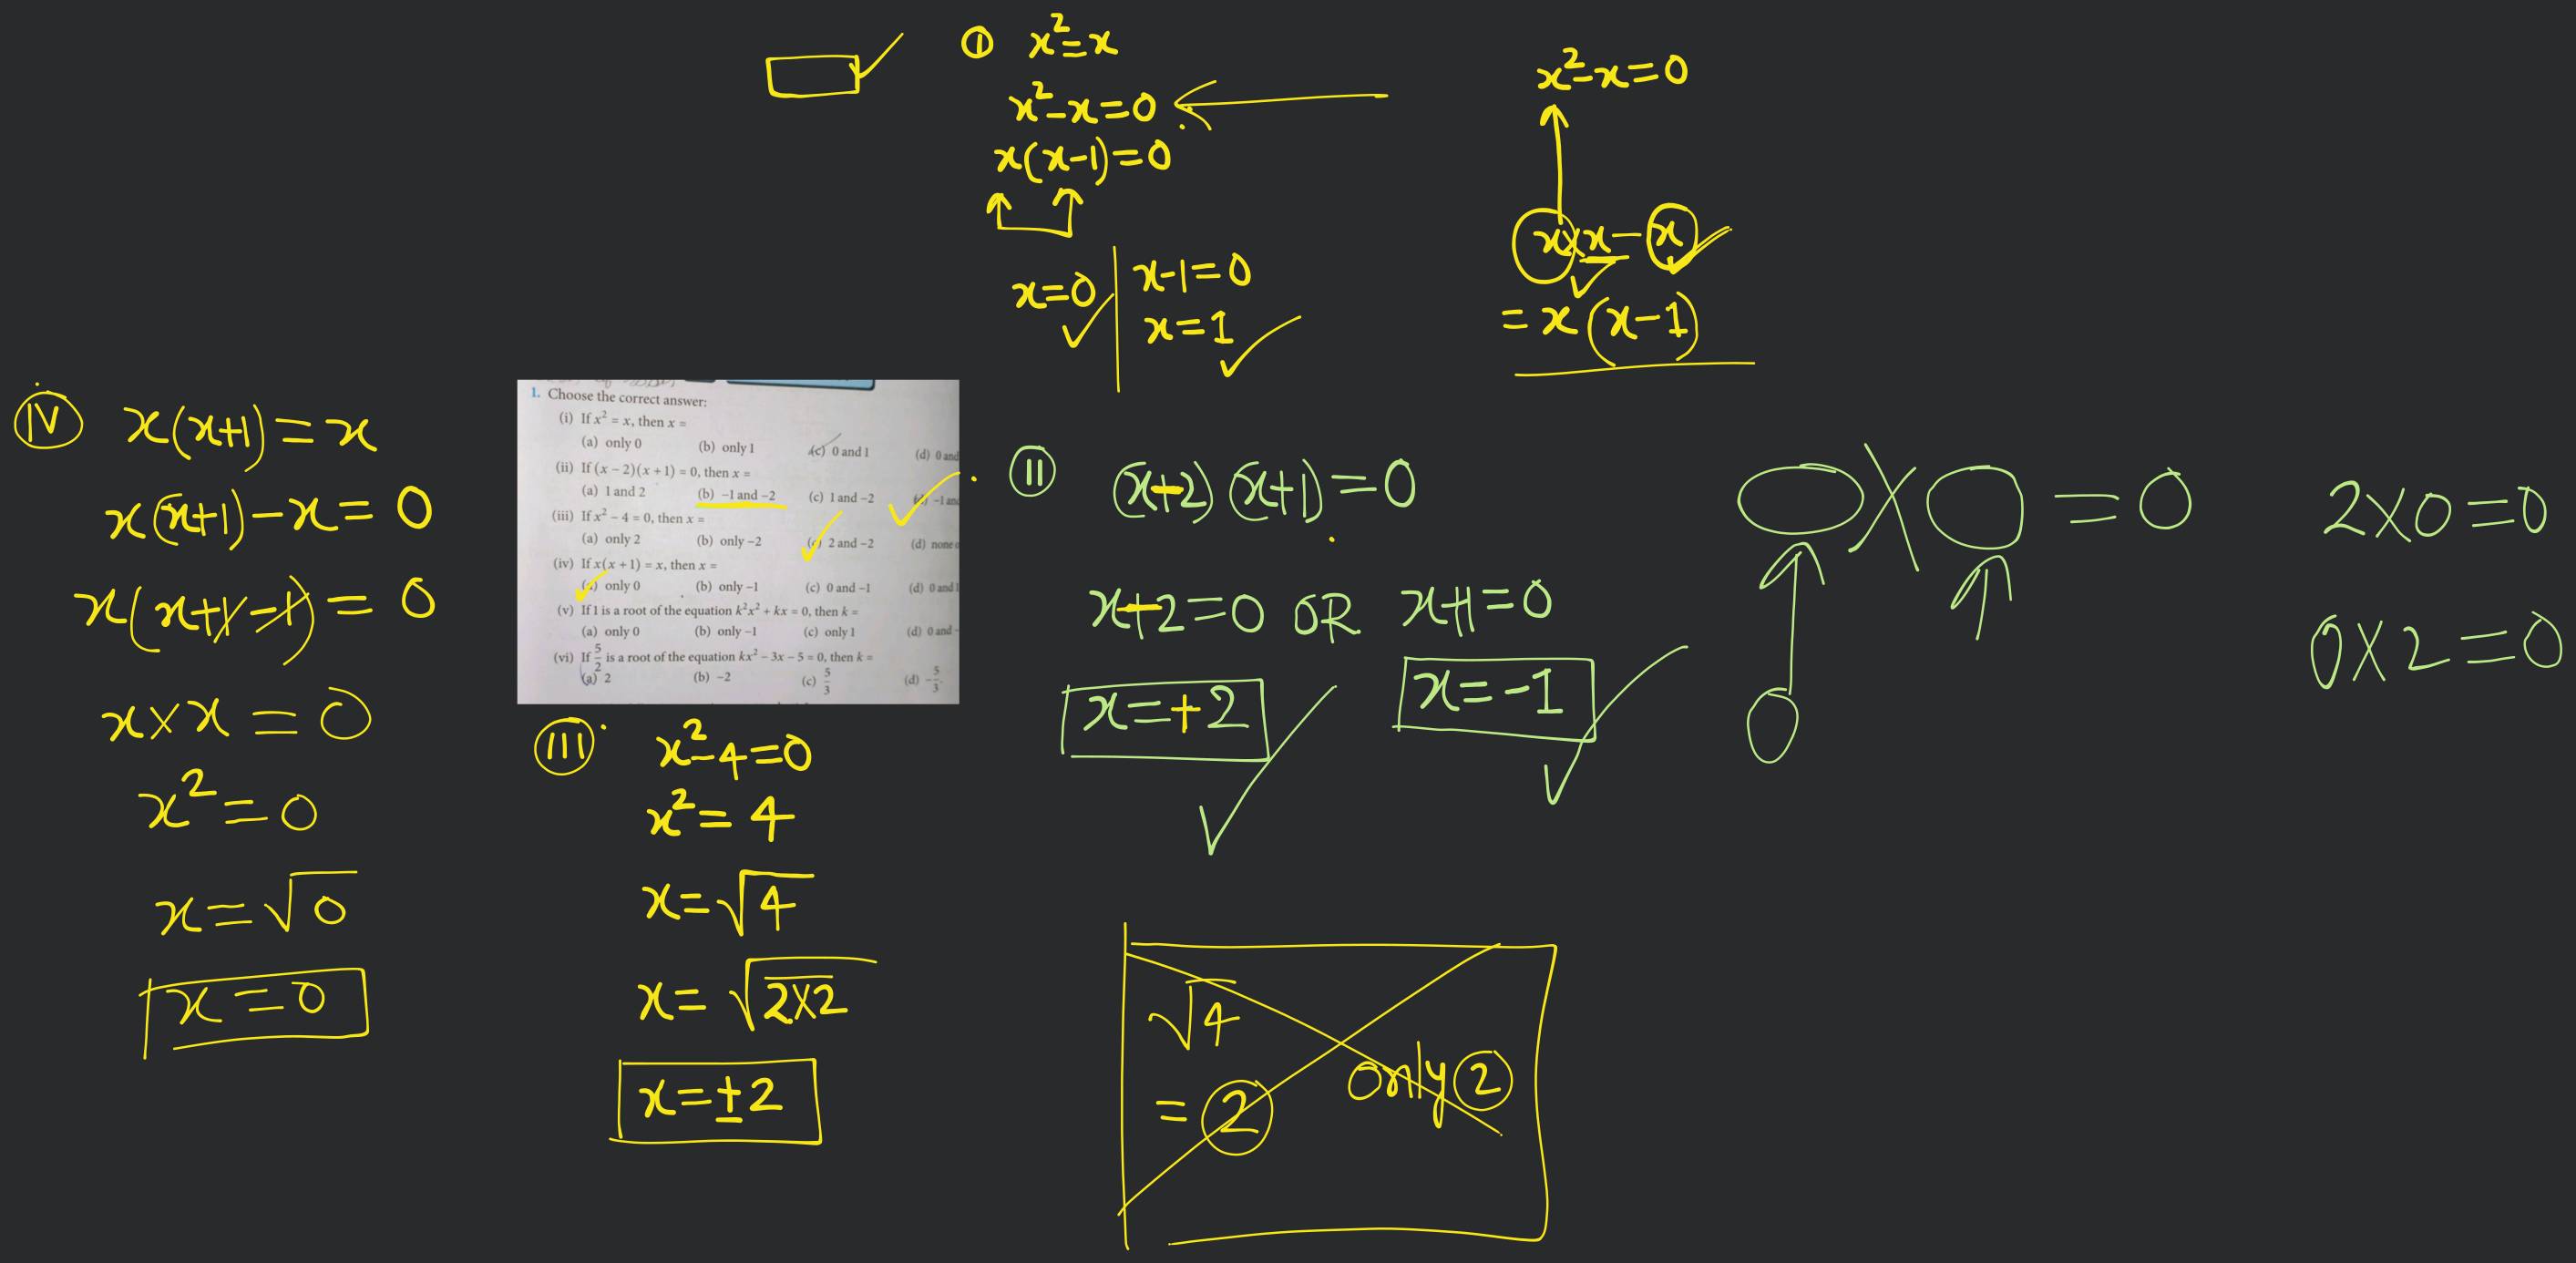 ① x²=x
x²-x=0
x(x-1)=0
x=0
x-1=0
x=1
x²-x=0
x×x-x
=x(x-1)
IV x(x+1)=x
x(x+1)-x=0
x(x+1-1)=0
x×x=0
x²=0
x=√0
x=0
1. Choose the correct answer:
(i) If x² = x, then x =
(a) only 0 (b) only 1 (c) 0 and 1 (d) 0 and
(ii) If (x − 2)(x + 1) = 0, then x =
(a) 1 and 2 (b) −1 and −2 (c) 1 and −2 −1 and
(iii) If x² − 4 = 0, then x =
(a) only 2 (b) only −2 2 and −2 (d) none
(iv) If x(x + 1) = x, then x =
only 0 (b) only −1 (c) 0 and −1 (d) 0 and 1
(v) If 1 is a root of the equation k²x² + kx = 0, then k =
(a) only 0 (b) only −1 (c) only 1 (d) 0 and -
(vi) If 5/2 is a root of the equation kx² − 3x − 5 = 0, then k =
(a) 2 (b) −2 (c) 5/3 (d) −5/3
II (x-2)(x+1)=0
x-2=0 OR x+1=0
x=+2
x=-1
×=0
0
2×0=0
0×2=0
III x²-4=0
x²=4
x=√4
x=√2×2
x=±2
√4
=2
only 2